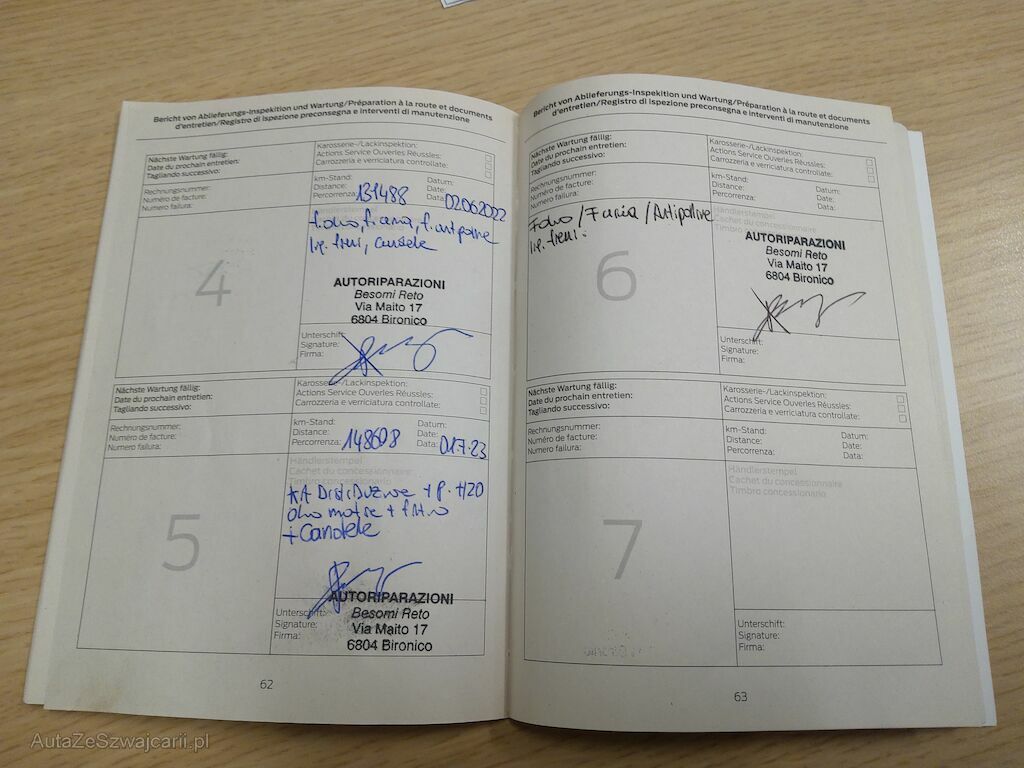 Bericht von Ablieferungs-Inspekition und Wartung/Préparation à la route et documents
d'entretien/Registro di ispezione preconsegna e interventi di manutenzione
Nächste Wartung fällig:
Date du prochain entretien:
Tagliando successivo:
Karosserie-/Lackinspektion:
Actions Service Ouveries Réussies:
Carrozzeria e verriciatura controllate:
Rechnungsnummer:
Numéro de facture:
Numero failura:
km-Stand:
Distance:
Percorrenza: 131488
Datum:
Date:
Data: 02062022
Händlerstempel
4
lip. freni, candele
AUTORIPARAZIONI
Besomi Reto
Via Maito 17
6804 Bironico
Unterschift:
Signature:
Firma:
Nächste Wartung fällig:
Date du prochain entretien:
Tagliando successivo:
Karosserie-/Lackinspektion:
Actions Service Ouveries Réussies:
Carrozzeria e verriciatura controllate:
Rechnungsnummer:
Numéro de facture:
Numero failura:
km-Stand:
Distance:
Percorrenza: 148608
Datum:
Date:
Data: 01.7.23
Händlerstempel
Cachet du concessionnaire
Timbro concessionario
Kit Distribuzione + p. H20
olio motore + filtro
+ Candele
5
AUTORIPARAZIONI
Besomi Reto
Via Maito 17
6804 Bironico
Unterschrift:
Signature:
Firma:
62
Bericht von Ablieferungs-Inspekition und Wartung/Préparation à la route et documents
d'entretien/Registro di ispezione preconsegna e interventi di manutenzione
Nächste Wartung fällig:
Date du prochain entretien:
Tagliando successivo:
Karosserie-/Lackinspektion:
Actions Service Ouveries Réussies:
Carrozzeria e verriciatura controllate:
Rechnungsnummer:
Numéro de facture:
Numero failura:
km-Stand:
Distance:
Percorrenza:
Datum:
Date:
Data:
Händlerstempel
Cachet du concessionnaire
Timbro
/ Antipolline
lip. freni
6
AUTORIPARAZIONI
Besomi Reto
Via Maito 17
6804 Bironico
Unterschrift:
Signature:
Firma:
Nächste Wartung fällig:
Date du prochain entretien:
Tagliando successivo:
Karosserie-/Lackinspektion:
Actions Service Ouveries Réussies:
Carrozzeria e verriciatura controllate:
Rechnungsnummer:
Numéro de facture:
Numero failura:
km-Stand:
Distance:
Percorrenza:
Datum:
Date:
Data:
Händlerstempel
Cachet du concessionnaire
Timbro concessionario
7
Unterschrift:
Signature:
Firma:
63
AutaZeSzwajcarii.pl